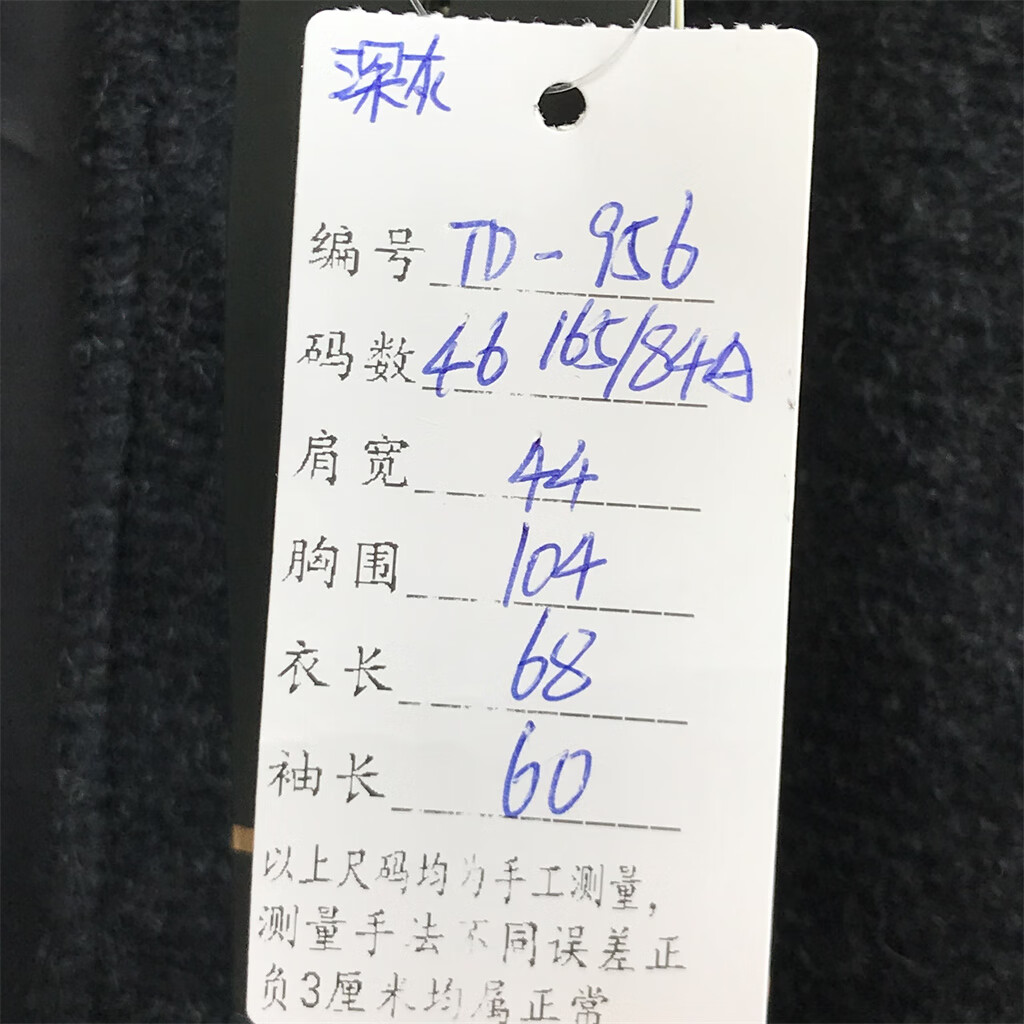 深灰
编号 TD-956
码数 46 165/84A
肩宽 44
胸围 104
衣长 68
袖长 60
以上尺码均为手工测量,
测量手法不同误差正
负3厘米均属正常